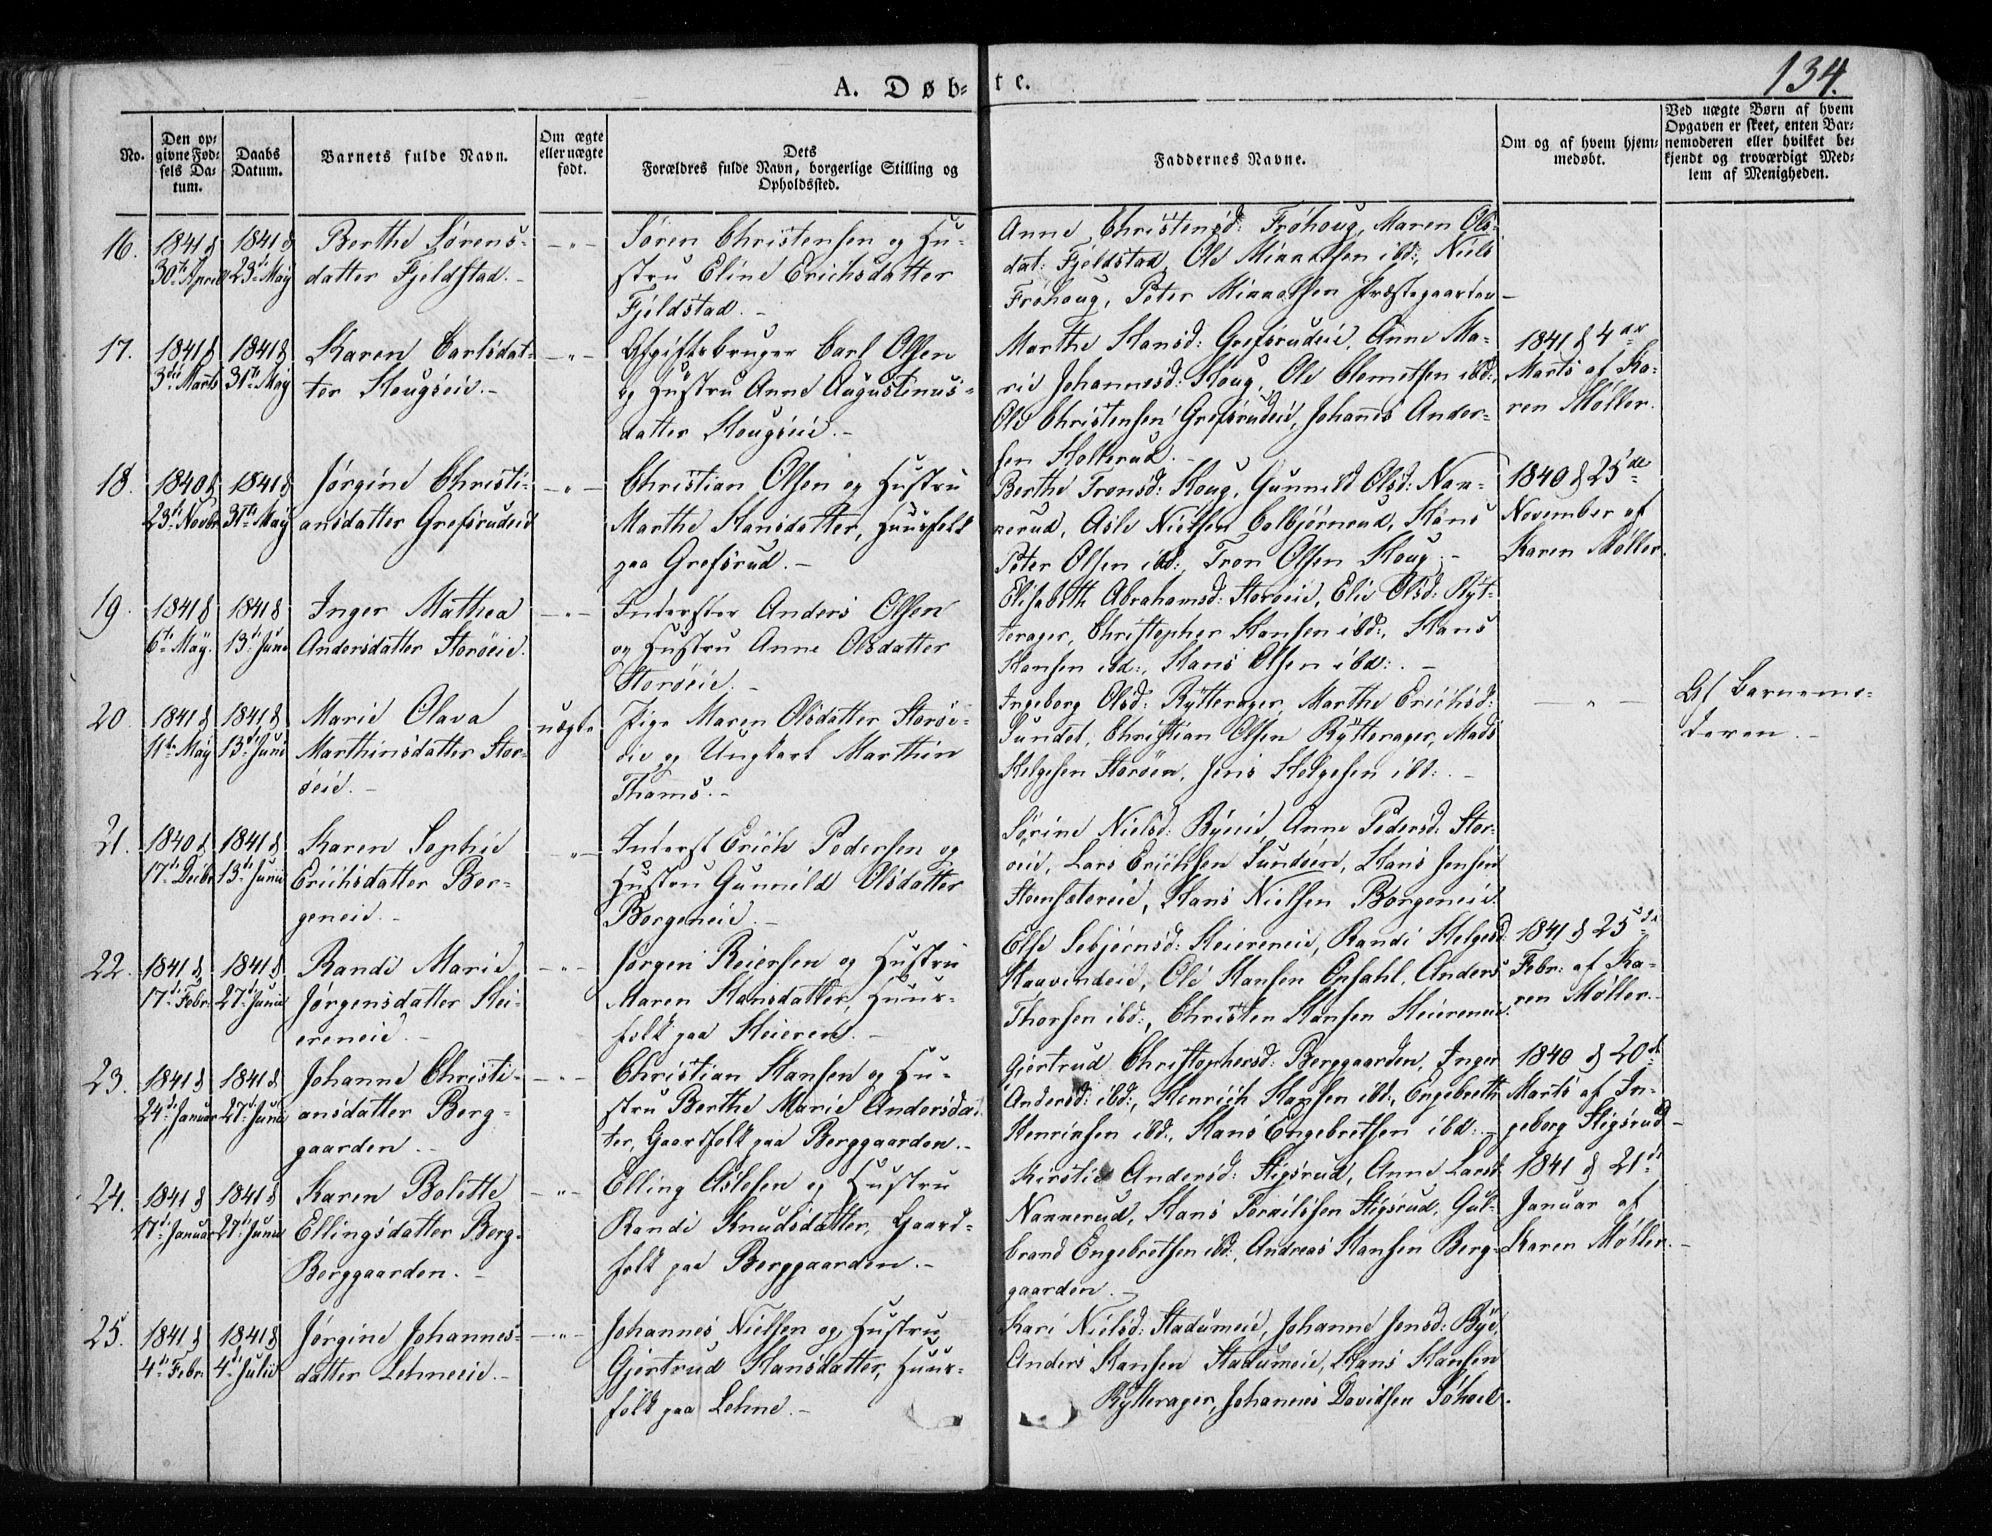 134.
A. Døb-
te.
No.
Den op-
givne Fød-
sels Da-
tum.
Daabs
Datum.
Barnets fulde Navn.
Om ægte
eller uægte
født.
Dets
Forældres fulde Navn, borgerlige Stilling og
Opholdssted.
Faddernes Navne.
Om og af hvem hjem-
medøbt.
Ved uægte Børn af hvem
Opgaven er skeet, enten Bar-
nemoderen eller hvilket be-
kjendt og troværdigt Med-
lem af Menigheden.
16.
1841 d
30te April
1841 d
23de May
Berthe Sørens-
datter Fjeldstad.-
- " -
Søren Christensen og Hu-
stru Eline Erichsdatter
Fjeldstad.-
Anne Christensd: Frøhoug, Maren Ols-
dat: Fjeldstad, Ole ibd:, Niels
Frøhoug, Peter Præstegaarden-
17.
1841 d
3die Marts
1841 d
31te May
Karen Carlsdat-
ter Hougseie.-
- " -
Afgiftsbruger Carl Olsen
og Hustru Anne Augustinus-
datter Hougseie.-
Marthe Hansd: Grefsrudeie, Anne Ma-
rie Johannesd: Houg, Ole Clemetsen ibd:,
Ole Christensen Grefsrudeie, Johannes Ander-
sen Hollerud.-
1841 d 4de
Marts af Ka-
ren Møller.
18.
1840 d
23de Novbr
1841 d
31te May
Jørgine Christi-
ansdatter Grefsrudeie
- " -
Christian Olsen og Hustru
Marthe Hansdatter, Huusfolk
paa Grefsrud.-
Berthe Tronsd: Houg, Gunnild Olsd: Nan-
nerud, Asle Nielsen Colbjørnsrud, Hans
Peter Olsen ibd:, Tron Olsen Houg.-
1840 d 25de
November af
Karen Møller.
19.
1841 d
6te May.
1841 d
13de Juni
Inger Mathea
Andersdatter Storøeie.
- " -
Inderster Anders Olsen
og Hustru Anne Olsdatter
Storøeie.-
Elisabeth Abrahamsd: Storøeie, Elie Olsd: Ryt-
terager, Christopher Hansen ibd:, Hans
Hansen ibd:, Hans Olsen ibd:.-
20.
1841 d
11te May
1841 d
13de Juni
Marie Olava
Marthinsdatter Stor-
øeie.-
uægte
Pige Maren Olsdatter Storø-
eie og Ungkarl Marthin
Thoms.-
Ingeborg Olsd: Rytterager, Marthe Erichsd:
Sundet, Christian Olsen Rytterager, Mads
Helgesen Storøen, Jens Helgesen ibd:.-
- " -
Af Barnemo-
deren.-
21.
1840 d
17de Decbr
1841 d
13de Junii
Karen Sophie
Erichsdatter Bor-
geneie.-
- " -
Inderst Erich Pedersen og
Hustru Gunnild Olsdatter
Borgeneie.-
Sørine Nielsd: Byeeie, Anne Pedersd: Stor-
øeie, Lars Erichsen Sundøeie, Hans Jensen
Steensætereie, Hans Nielsen Borgeneie.
22.
1841 d
17de Febr.
1841 d
27de Junii
Randi Marie
Jørgensdatter Hei-
ereneie.-
- " -
Jørgen Reiersen og Hustru
Maren Hansdatter, Huus-
folk paa Heieren.-
Else Sebjørnsd: Heiereneie, Randi Helgesd:
Haavindeie, Ole Hansen Onsahl, Anders
Thorsen ibd:, Christen Hansen Heiereneie.
1841 d 25de
Febr: af Ka-
ren Møller.-
23.
1841 d
24de Januar
1841 d
27de Junii
Johanne Christi-
ansdatter Berg-
gaarden.-
- " -
Christian Hansen og Hu-
stru Berthe Marie Andersdat-
ter, Gaardfolk paa Berggaarden.-
Gjertrud Christophersd: Berggaarden, Inger
Andersd: ibd:, Henrich Hansen ibd:, Engebreth
Henriksen ibd:, Hans Engebretsen ibd:.-
1840 d 20de
Marts af In-
geborg Stigsrud-
24.
1841 d
17de Januar
1841 d
27de Junii
Karen Bolette
Ellingsdatter Berg-
Berggaarden.-
- " -
Elling Aslesen og Hustru
Randi Knudsdatter, Gaard-
folk paa Berggaarden.-
Kirstie Andersd: Stigsrud, Anne Larsd:
Nannerud, Hans Stigsrud, Gul-
brand Engebretsen ibd:, Andreas Hansen Berg-
gaarden.-
1841 d 21de
Januar af
Karen Møller.-
25.
1841 d
4de Febr.
1841 d
4de Julii
Jørgine Johannes-
datter Lehneeie.-
- " -
Johannes Nielsen og Hustru
Gjertrud Hansdatter, Huus-
folk paa Lehne.-
Kari Nielsd: Stadumeie, Johanne Jensd: Bye,
Anders Hansen Stadumeie, Hans Hansen
Rytterager, Johannes Davidsen Søhoel.